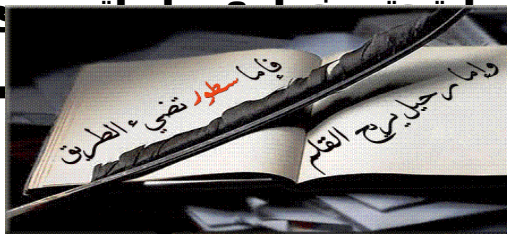 فإما سطور تضيء الطريق
وإما رحيل يريح القلم